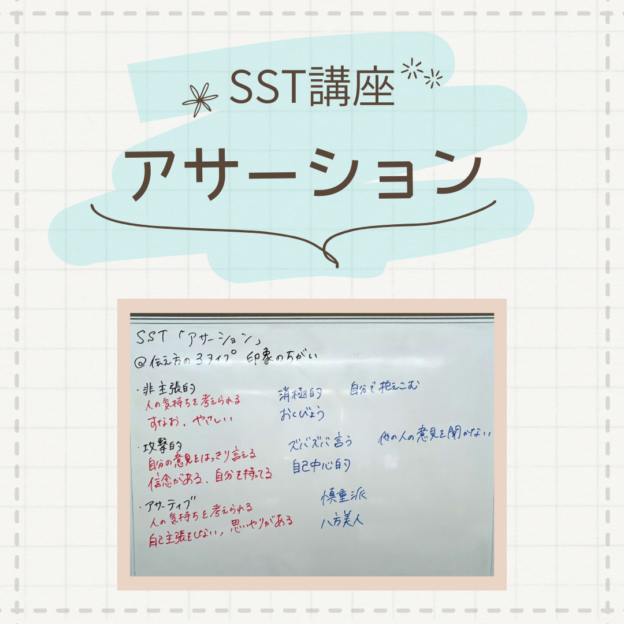 SST講座
アサーション
SST「アサーション」
@伝え方の3タイプ 印象のちがい
・非主張的 消極的 自分で抱えこむ
人の気持ちを考えられる
すなお、やさしい おくびょう
・攻撃的 ズバズバ言う 他の人の意見を聞かない
自分の意見をはっきり言える
信念がある、自分を持てる 自己中心的
・アサーティブ 慎重派
人の気持ちを考えられる
自己主張をしない、思いやりがある 八方美人